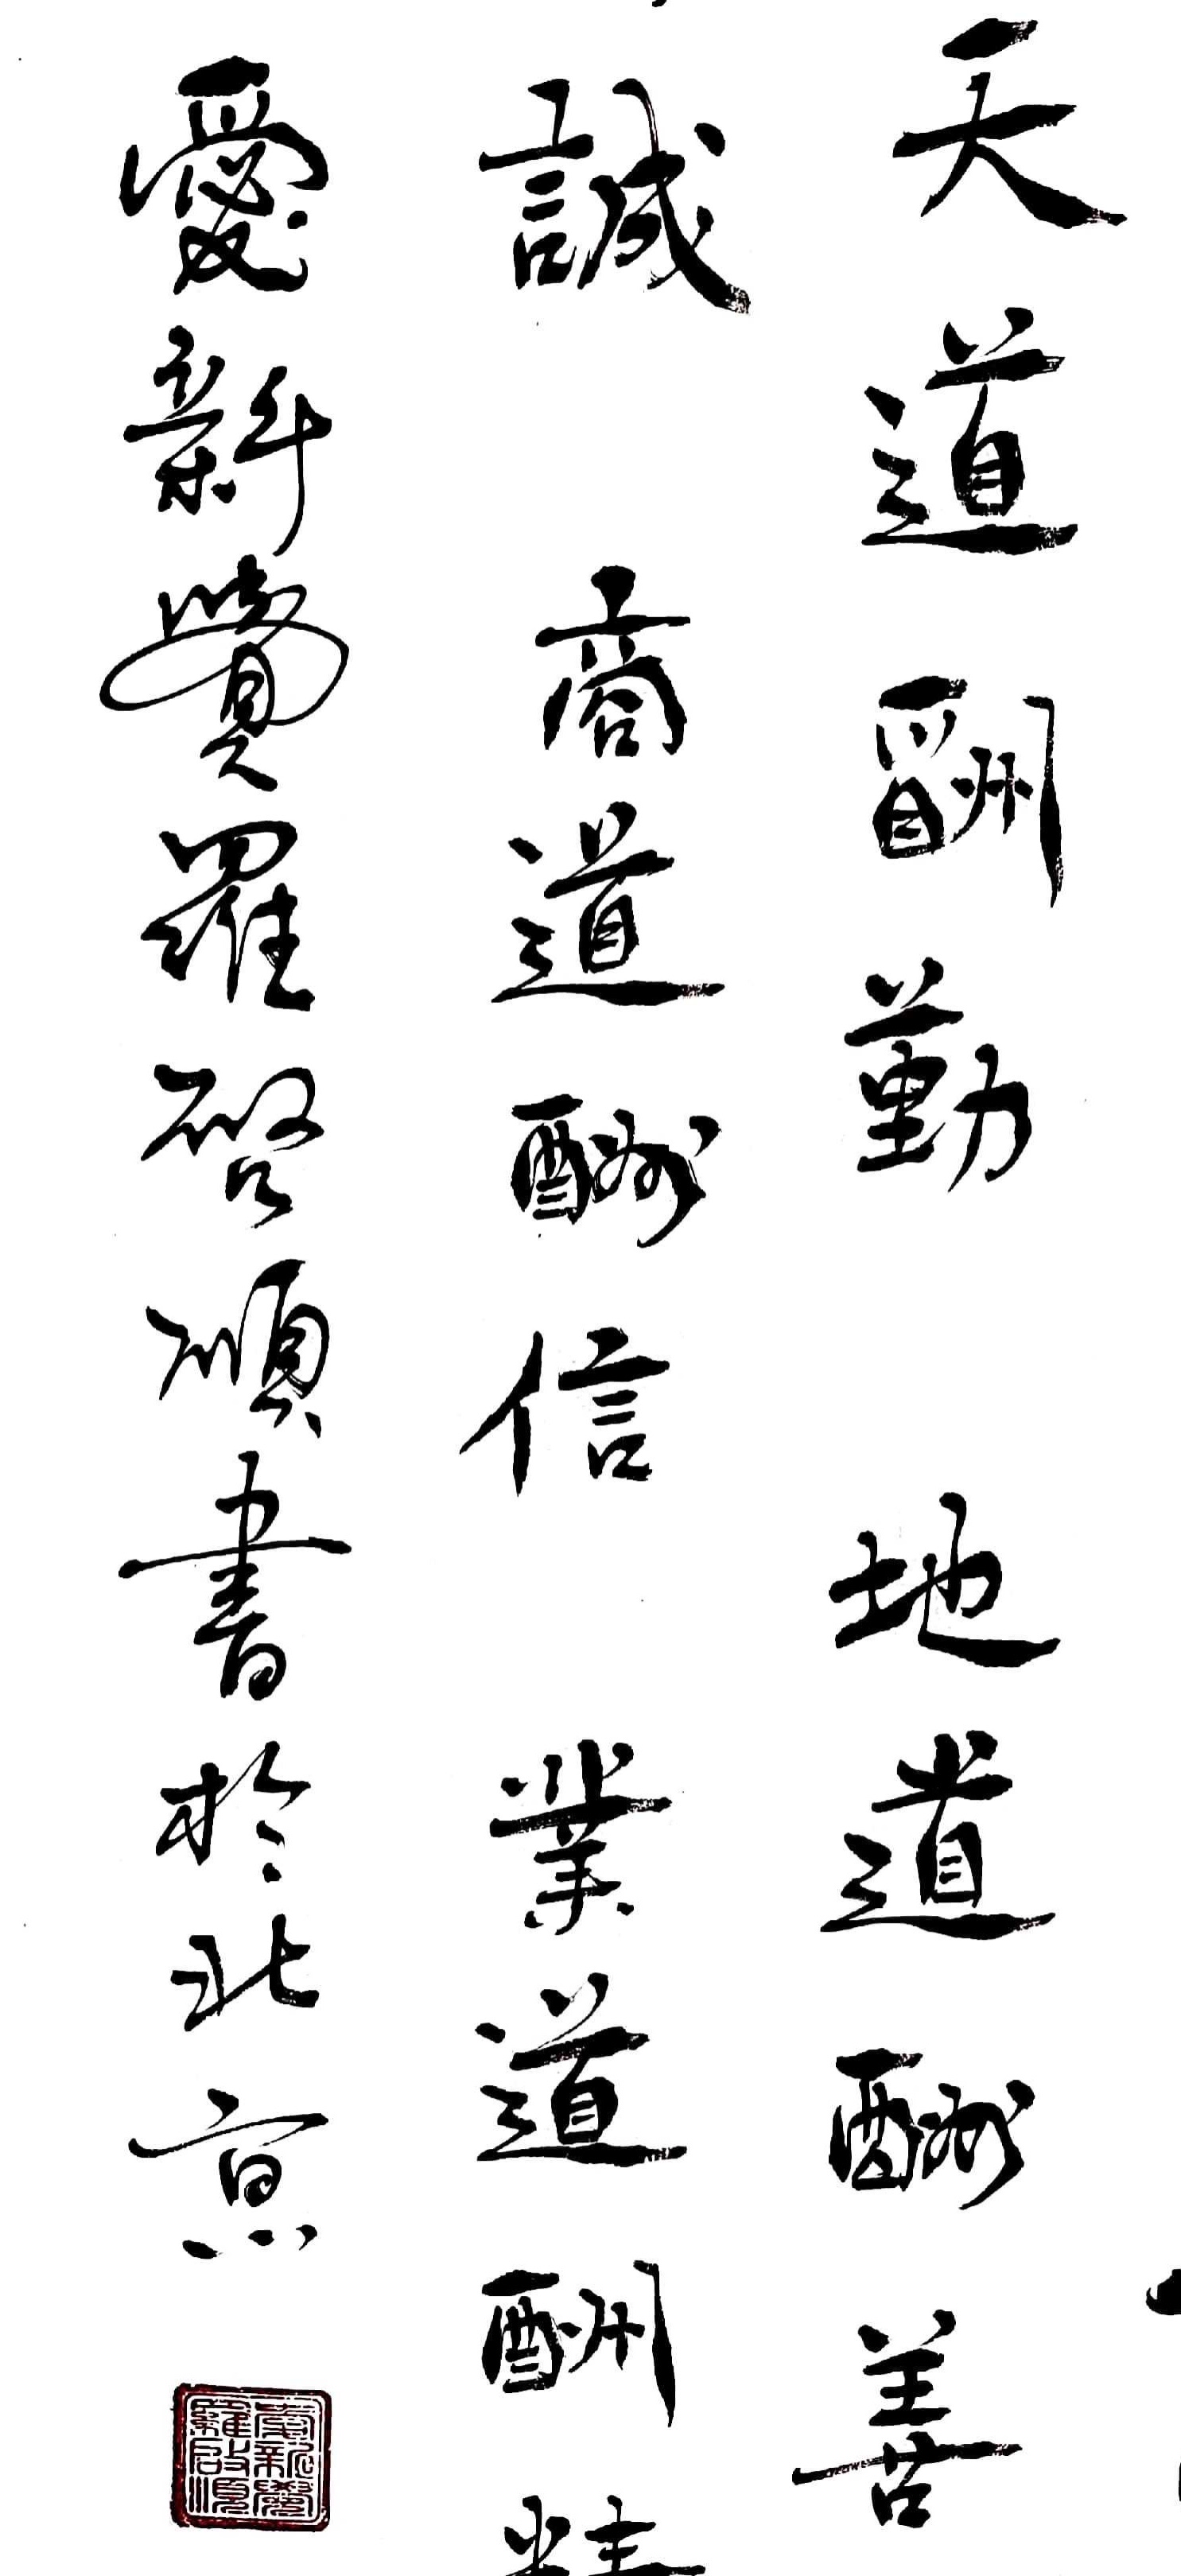 天道酬勤 地道酬善
誠 商道酬信 業道酬精
愛新覺羅啓順書於北京
愛新覺羅啟順